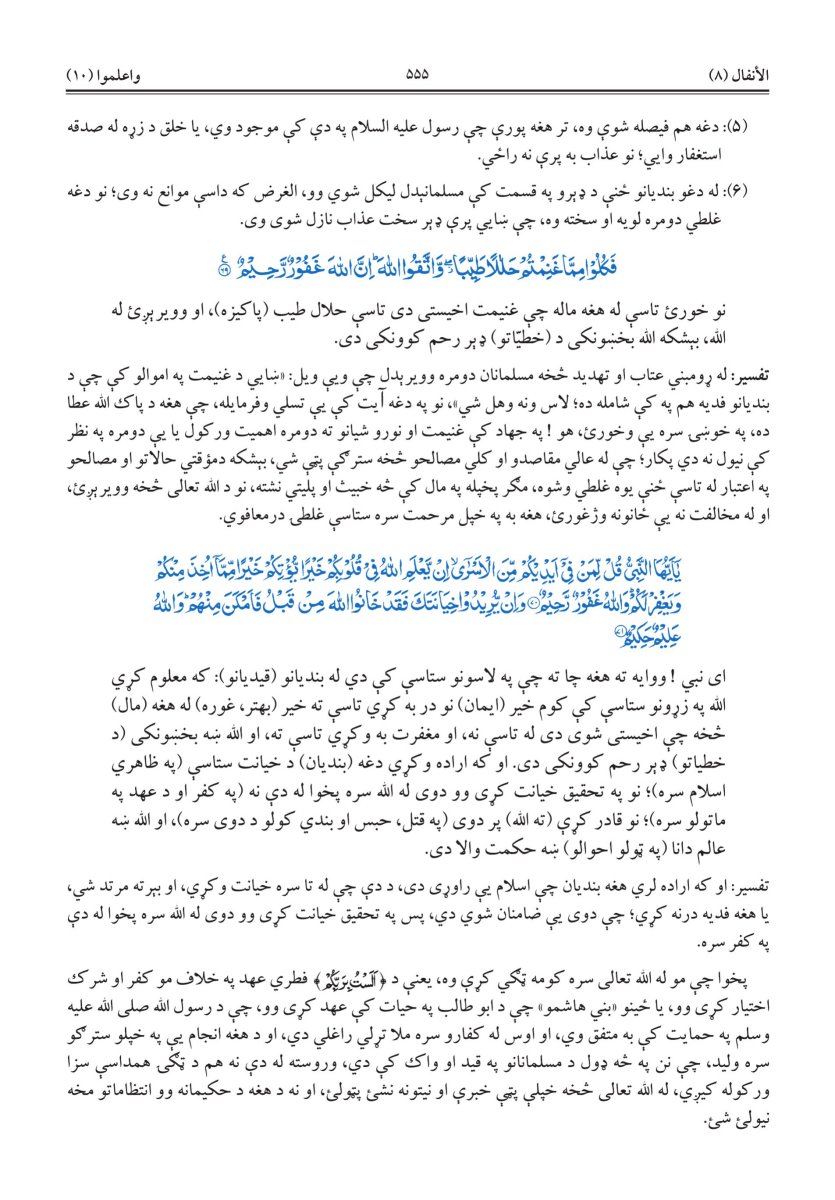 الأنفال (۸) ۵۵۵ واعلموا (۱۰)
(۵): دغه هم فیصله شوې وه، تر هغه پورې چې رسول علیه السلام په دې کې موجود وي، یا خلق د زړه له صدقه
استغفار وایي؛ نو عذاب به پرې نه راځي.
(۶): له دغو بندیانو ځنې د ډېرو په قسمت کې مسلمانېدل لیکل شوي وو، الغرض که داسې موانع نه وی؛ نو دغه
غلطي دومره لویه او سخته وه، چې ښایي پرې ډېر سخت عذاب نازل شوی وی.
فَكُلُوْا مِمَّا غَنِمْتُمْ حَلٰلًا طَيِّبًا ۖ وَّاتَّقُوا اللّٰهَ ؕ اِنَّ اللّٰهَ غَفُوْرٌ رَّحِيْمٌ ﴿۶۹﴾
نو خورئ تاسې له هغه ماله چې غنیمت اخیستی دی تاسې حلال طیب (پاکیزه)، او وویرېږئ له
الله، بېشکه الله بخښونکی د (خطیّاتو) ډېر رحم کوونکی دی.
تفسیر: له ړومبني عتاب او تهدید څخه مسلمانان دومره وویرېدل چې ویې ویل: «ښایي د غنیمت په اموالو کې چې د
بندیانو فدیه هم په کې شامله ده؛ لاس ونه وهل شي»، نو په دغه آیت کې یې تسلي وفرمایله، چې هغه د پاك الله عطا
ده، په خوښۍ سره یې وخورئ، هو ! په جهاد کې غنیمت او نورو شیانو ته دومره اهمیت ورکول یا یې دومره په نظر
کې نیول نه دي پکار؛ چې له عالي مقاصدو او کلي مصالحو څخه سترګې پټې شي، بېشکه دمؤقتي حالاتو او مصالحو
په اعتبار له تاسې ځنې یوه غلطي وشوه، مګر پخپله په مال کې څه خبیث او پلیتي نشته، نو د الله تعالی څخه وویرېږئ،
او له مخالفت نه یې ځانونه وژغورئ، هغه به په خپل مرحمت سره ستاسې غلطۍ درمعافوي.
يٰۤاَيُّهَا النَّبِيُّ قُلْ لِّمَنْ فِيْۤ اَيْدِيْكُمْ مِّنَ الْاَسْرٰۤى ۙ اِنْ يَّعْلَمِ اللّٰهُ فِيْ قُلُوْبِكُمْ خَيْرًا يُّؤْتِكُمْ خَيْرًا مِّمَّاۤ اُخِذَ مِنْكُمْ
وَيَغْفِرْ لَكُمْ ؕ وَاللّٰهُ غَفُوْرٌ رَّحِيْمٌ ﴿۷۰﴾ وَاِنْ يُّرِيْدُوْا خِيَانَتَكَ فَقَدْ خَانُوا اللّٰهَ مِنْ قَبْلُ فَاَمْكَنَ مِنْهُمْ ؕ وَاللّٰهُ
عَلِيْمٌ حَكِيْمٌ ﴿۷۱﴾
ای نبي ! ووایه ته هغه چا ته چې په لاسونو ستاسې کې دي له بندیانو (قیدیانو): که معلوم کړي
الله په زړونو ستاسې کې کوم خیر (ایمان) نو در به کړي تاسې ته خیر (بهتر، غوره) له هغه (مال)
څخه چې اخیستی شوی دی له تاسې نه، او مغفرت به وکړي تاسې ته، او الله ښه بخښونکی (د
خطیاتو) ډېر رحم کوونکی دی. او که اراده وکړي دغه (بندیان) د خیانت ستاسې (په ظاهري
اسلام سره)؛ نو په تحقیق خیانت کړی وو دوی له الله سره پخوا له دې نه (په کفر او د عهد په
ماتولو سره)؛ نو قادر کړې (ته الله) پر دوی (په قتل، حبس او بندي کولو د دوی سره)، او الله ښه
عالم دانا (په ټولو احوالو) ښه حکمت والا دی.
تفسیر: او که اراده لري هغه بندیان چې اسلام یې راوړی دی، د دې چې له تا سره خیانت وکړي، او بېرته مرتد شي،
یا هغه فدیه درنه کړي؛ چې دوی یې ضامنان شوي دي، پس په تحقیق خیانت کړی وو دوی له الله سره پخوا له دې
په کفر سره.
پخوا چې مو له الله تعالی سره کومه ټګي کړې وه، یعنې د ﴿اَلَسْتُ بِرَبِّكُمْ﴾ فطري عهد په خلاف مو کفر او شرك
اختیار کړی وو، یا ځینو «بني هاشمو» چې د ابو طالب په حیات کې عهد کړی وو، چې د رسول الله صلی الله علیه
وسلم په حمایت کې به متفق وي، او اوس له کفارو سره ملا تړلي راغلي دي، او د هغه انجام یې په خپلو سترګو
سره ولید، چې نن په څه ډول د مسلمانانو په قید او واك کې دي، وروسته له دې نه هم د ټګۍ همداسې سزا
ورکوله کیږي، له الله تعالی څخه خپلې پټې خبرې او نیتونه نشئ پټولئ، او نه د هغه د حکیمانه وو انتظاماتو مخه
نیولئ شئ.